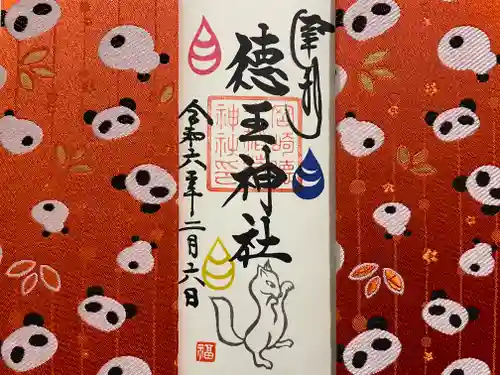 奉拝
徳王神社
神社印
令和六年二月六日
福